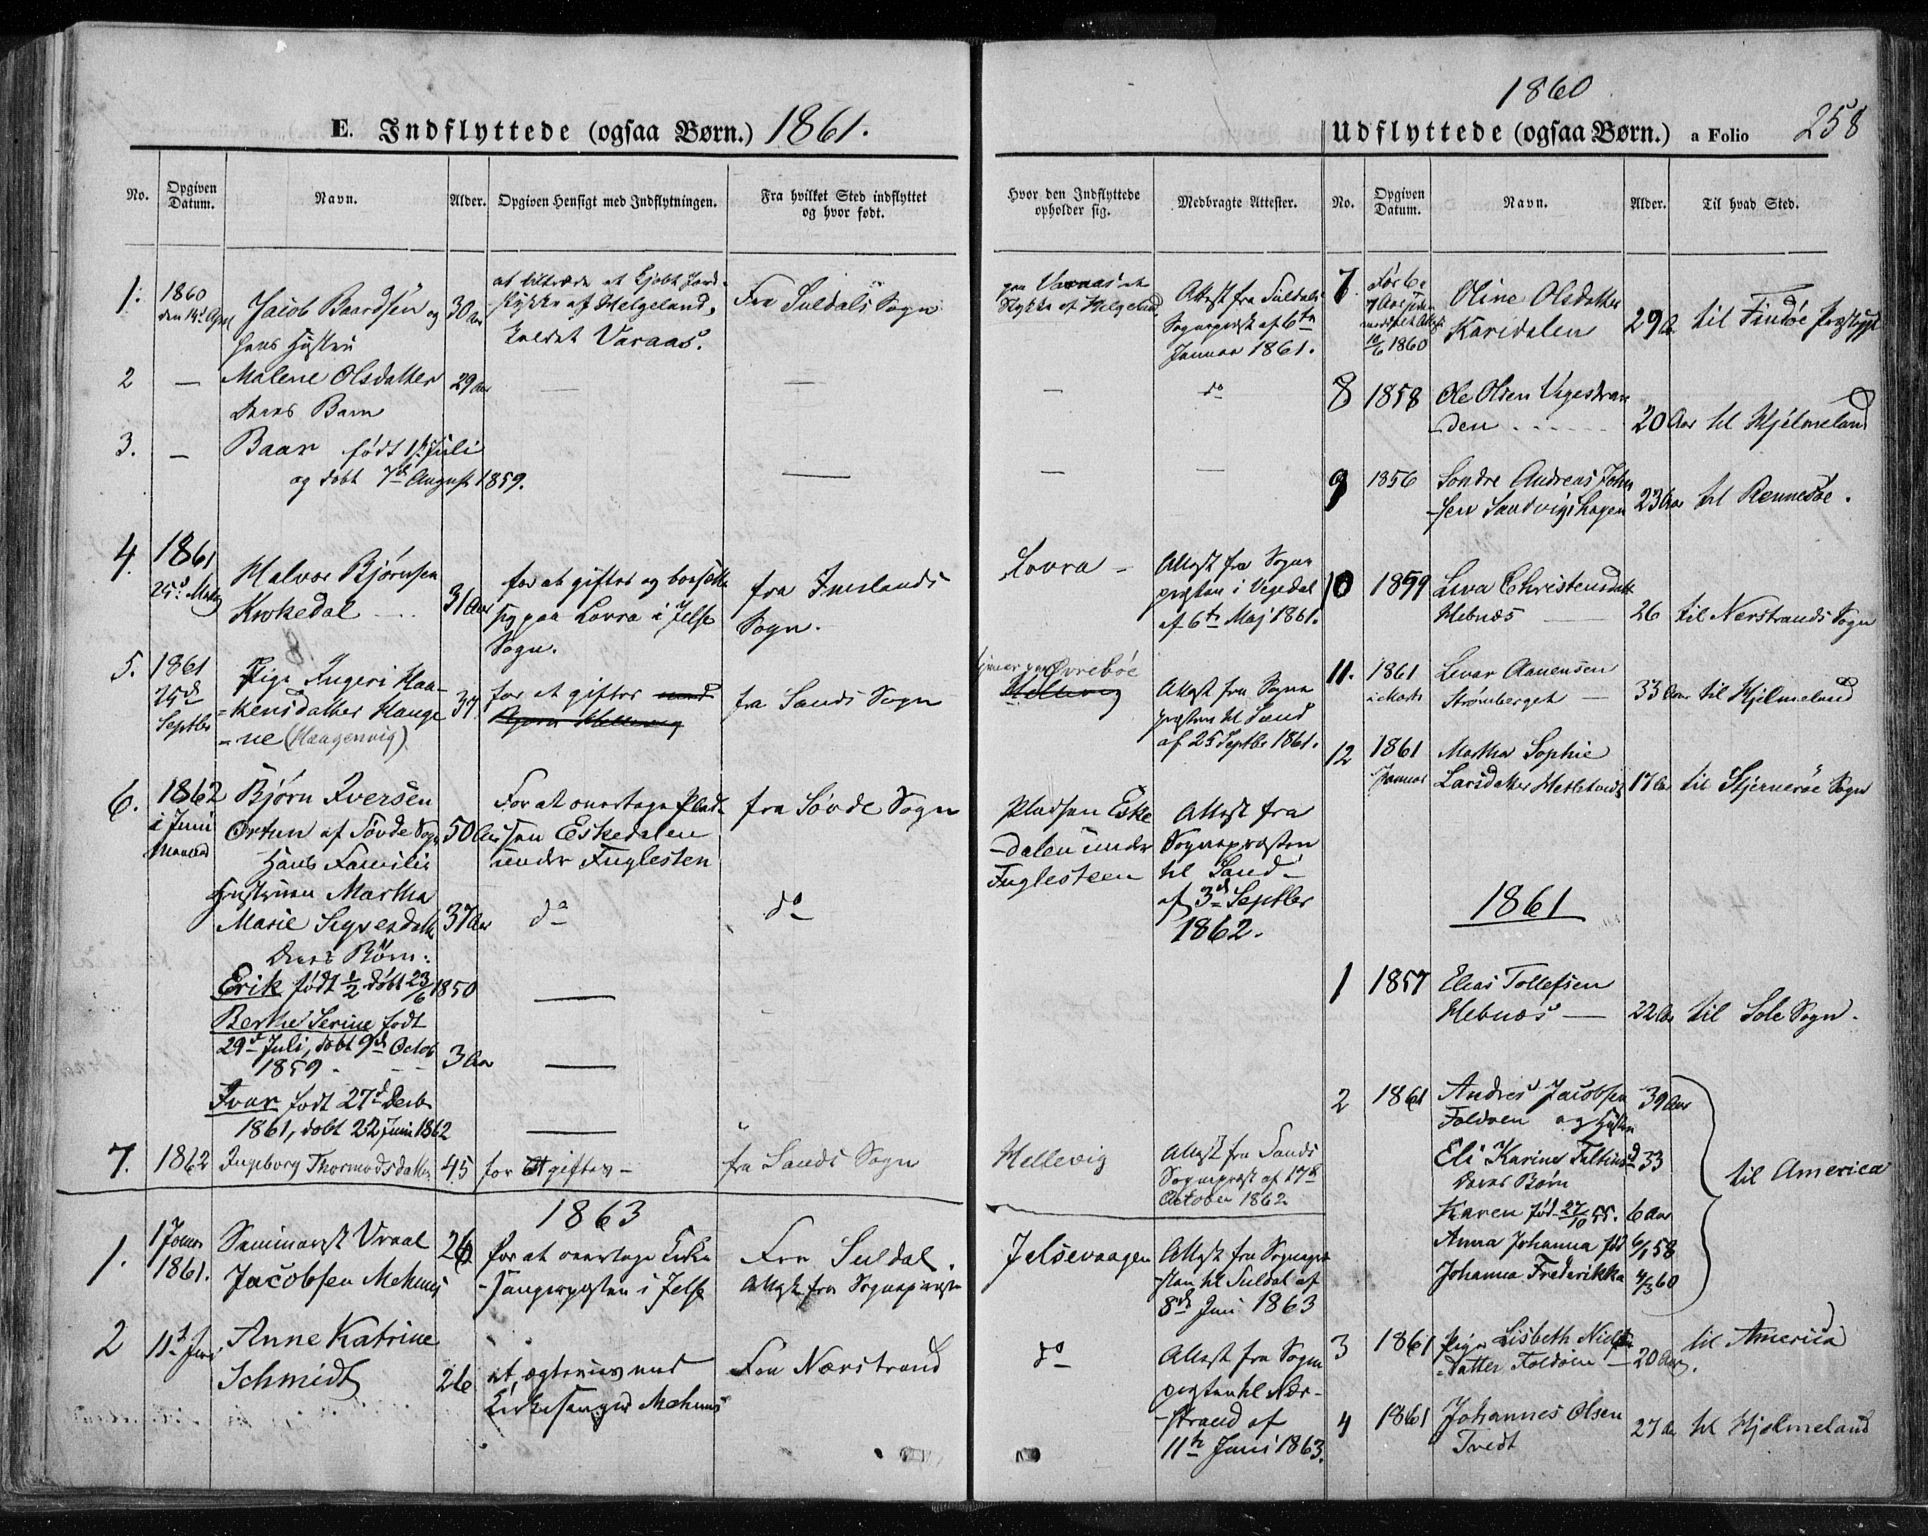 E. Indflyttede (ogsaa Børn.) 1861.
No.
Opgiven Datum.
Navn.
Alder.
Opgiven Hensigt med Indflytningen.
Fra hvilket Sted indflyttet
og hvor født.
1.
1860
Jacob Baardsen og
hans Hustru
30 Aar
at tiltræde et kjøbt Jord-
stykke af Helgeland,
kaldet Varaas.
Fra Suldals Sogn
2
—
Malene Olsdatter
Deres Barn
29 Aar
—
—
3.
—
Baar født 1st Juli
og døbt 7de August 1859.
—
4.
1861
Halvor Bjørnsen
Krokedal
31 Aar
for at giftes og bosætte
sig paa Lovra i Jelse
Sogn.
fra Imslands
Sogn.
5.
1861
25de
Septbr
Pige Ingeri Haa-
-kensdatter Hauge
-ne (Haugenvig)
37
for at giftes med
Bjørn Hellevig
fra Sands Sogn
6.
1862
i Juni
Maaned
Bjørn Iversen
Ortun af Søvde Sogn
Hans Familie
Hustruen Martha
Marie Sigvesdatter
Deres Børn:
50 Aar
37 Aar
For at overtage Plad-
sen Eskedalen
under Fuglesten
do
fra Søvde Sogn
do
Erik født 1/2 døbt 23/6 1850
—
Berthe Serine født
29de Juli, døbt 9de Octob
1859
3 Aar
—
Ivar født 27de Decbr
1861, døbt 22 Juni 1862
—
7.
1862
Ingeborg Thormodsdatter
45
for at giftes
fra Sands Sogn
1863
1.
1861.
Seminarist Vraal
Jacobsen Mehuus
26
for at overtage Kirke
-sangerposten i Jelse
Fra Suldal.
Attest fra Sognepræsten
2
Anne Katrine
Schmidt
26
at ægtevies med
Kirkesanger Mehuus
Fra Nærstrand
Hvor den Indflyttede
opholder sig.
Medbragte Attester.
paa Varaas et
Stykke af Helgeland
Attest fra Suldals
Sognepræst af 6te
Januar 1861.
—
do
—
—
Lovra –
Attest fra Sogne
præsten i Vigedal
af 6te Maj 1861.
Øvrebøe
Hellevig
Attest fra Sogne
præsten til Sand
af 25 Septbr 1861.
Pladsen Eske
-dalen under
Fuglesteen
Attest fra
Sognepræsten
til Sand
af 3de Septbr
1862.
Hellevig
Attest fra Sands
Sognepræst af 17de
October 1862
Jelsevaagen
Attest fra Sognepræ
-sten til Suldal af
8de Juni 1863
do
Attest fra Sogne
præsten til Nær-
-strand af
11te Juni 1863.
1860
Udflyttede (ogsaa Børn.) a Folio 258
No.
Opgiven Datum.
Navn.
Alder.
Til hvad Sted.
7.
10/6 1860
Oline Olsdatter
Karidalen
29 Aar
til Findøe Præstegjd
8
1858
Ole Olsen Vigestran
-den
20 Aar
til Hjelmeland
9
1856
Sondre Andreas John
-sen Sandvigshagen
23 Aar
til Rennesøe.
10
1859
Liva Christensdatter
Hebnæs
26
til Nerstrands Sogn
11.
1861
Levar Aanensen
Strømberget
33 Aar
til Hjelmeland
12
1861
Januar
Martha Sophie
Larsdatter
17 Aar
til Stjernerøe Sogn
1861
1
1857
Elias Tollefsen
Hebnæs
22 Aar
til Sole Sogn.
2
1861
Andres Jacobsen
Foldøen og Hustru
39 Aar
Eli Karine
33
Deres Børn
Karen fød 27/10 55.
6 Aar
Anna Johanna fød 6/1 58
Johanna Frederikka 4/3 60
til America
3
1861
Pige Lisbeth Niels
-datter Foldøen
20 Aar.
til America
4
1861
Johannes Olsen
Tvedt
27 Aar
til Hjelmeland